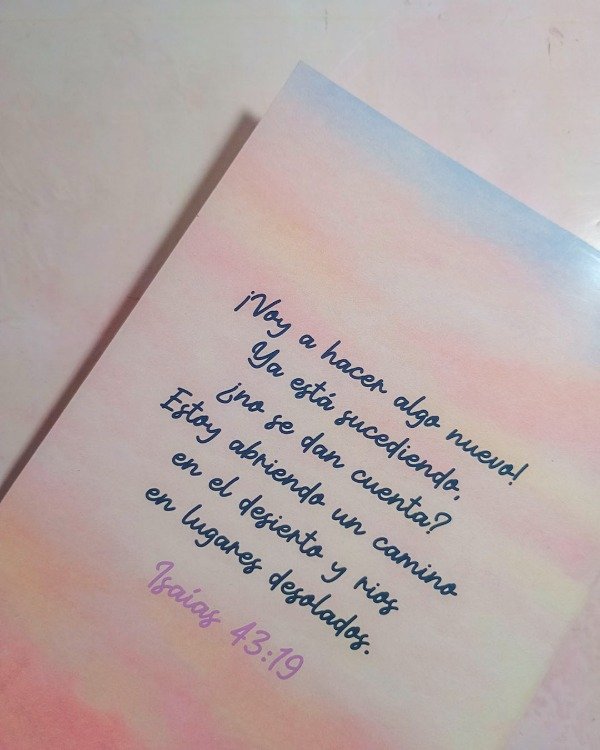 ¡Voy a hacer algo nuevo!
Ya está sucediendo,
¿no se dan cuenta?
Estoy abriendo un camino
en el desierto y rios
en lugares desolados.
Isaías 43:19